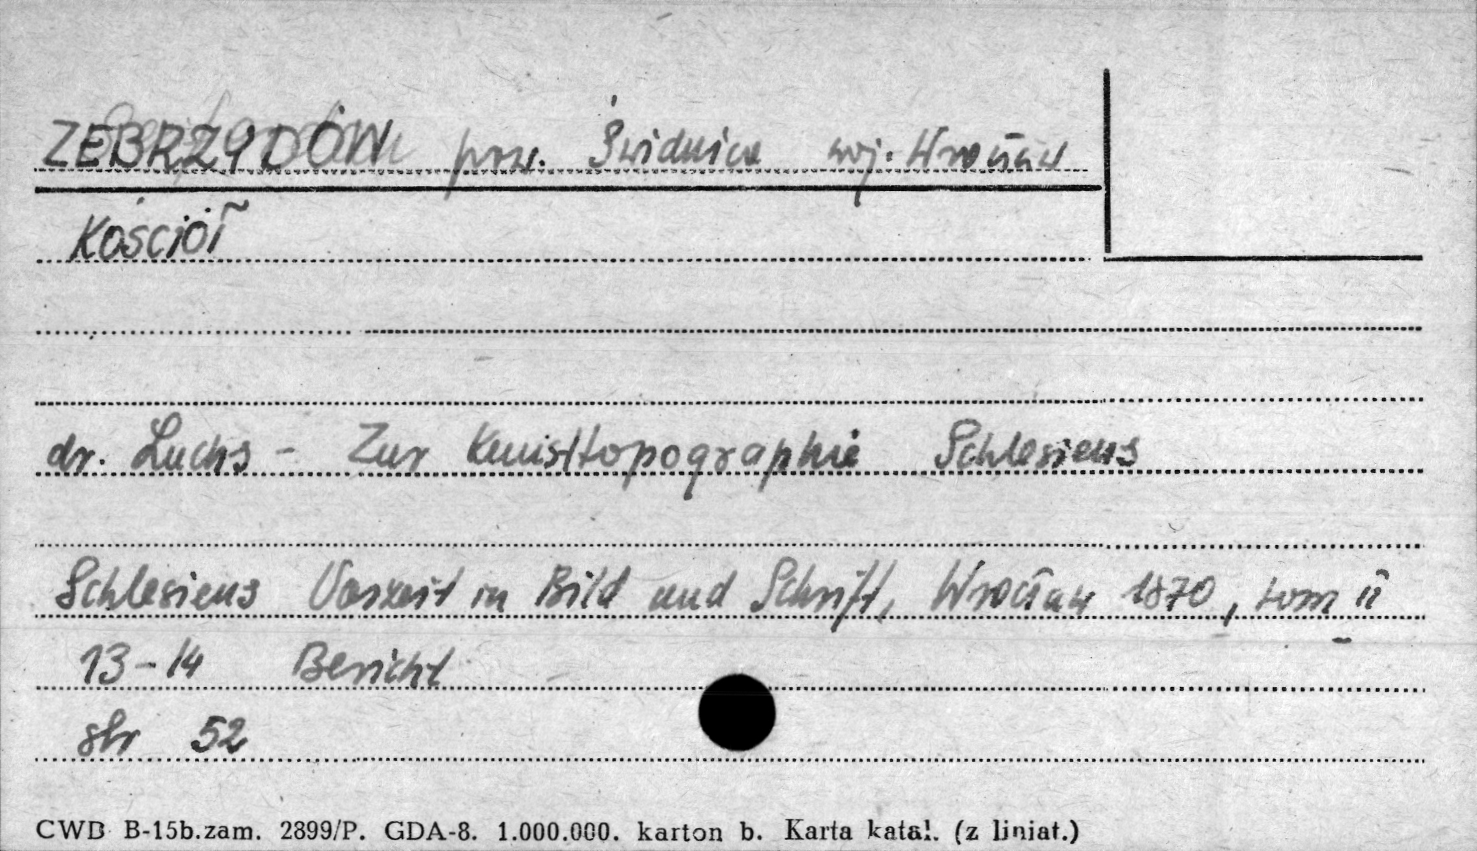 ZEBRZYDÓW pow. Świdnica woj. Wrocław
Kościół
dr. Luchs - Zur Kunsttopographie Schlesiens
Schlesiens Vorzeit in Bild und Schrift, Wrocław 1870, tom II
13-14 Bericht
str 52
CWD B-15b.zam. 2899/P. GDA-8. 1.000.000. karton b. Karta katal. (z liniat.)